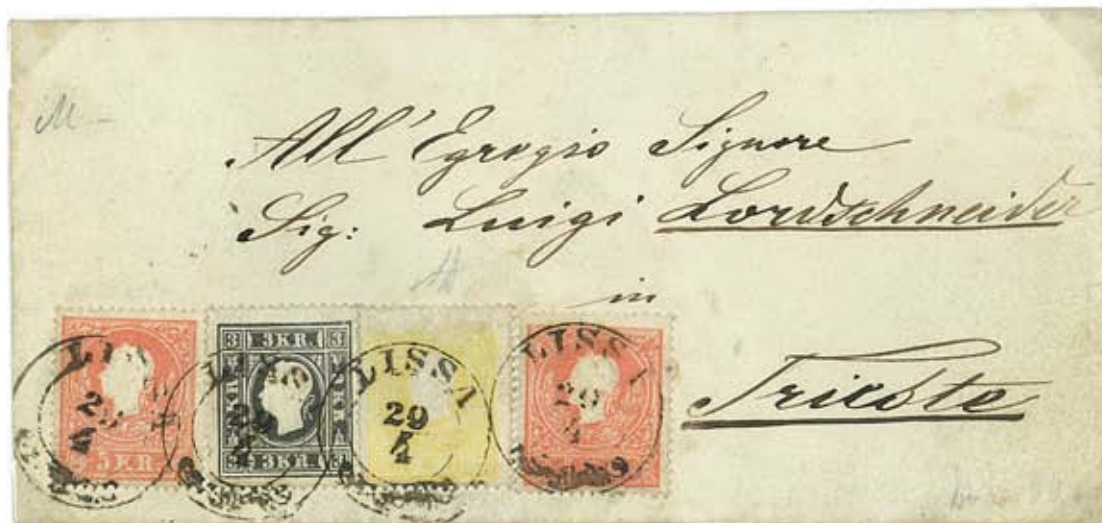 All' Egregio Signore
Sig: Luigi Lordschneider
in
Trieste
LISSA
29
4
5 KR.
LISSA
29
4
3 KR.
3 KR.
LISSA
29
4
LISSA
29
4